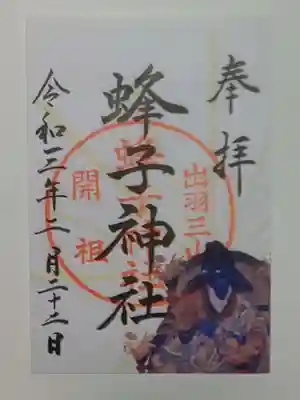 奉拝
出羽三山
蜂子神社
開祖
令和三年二月二十二日